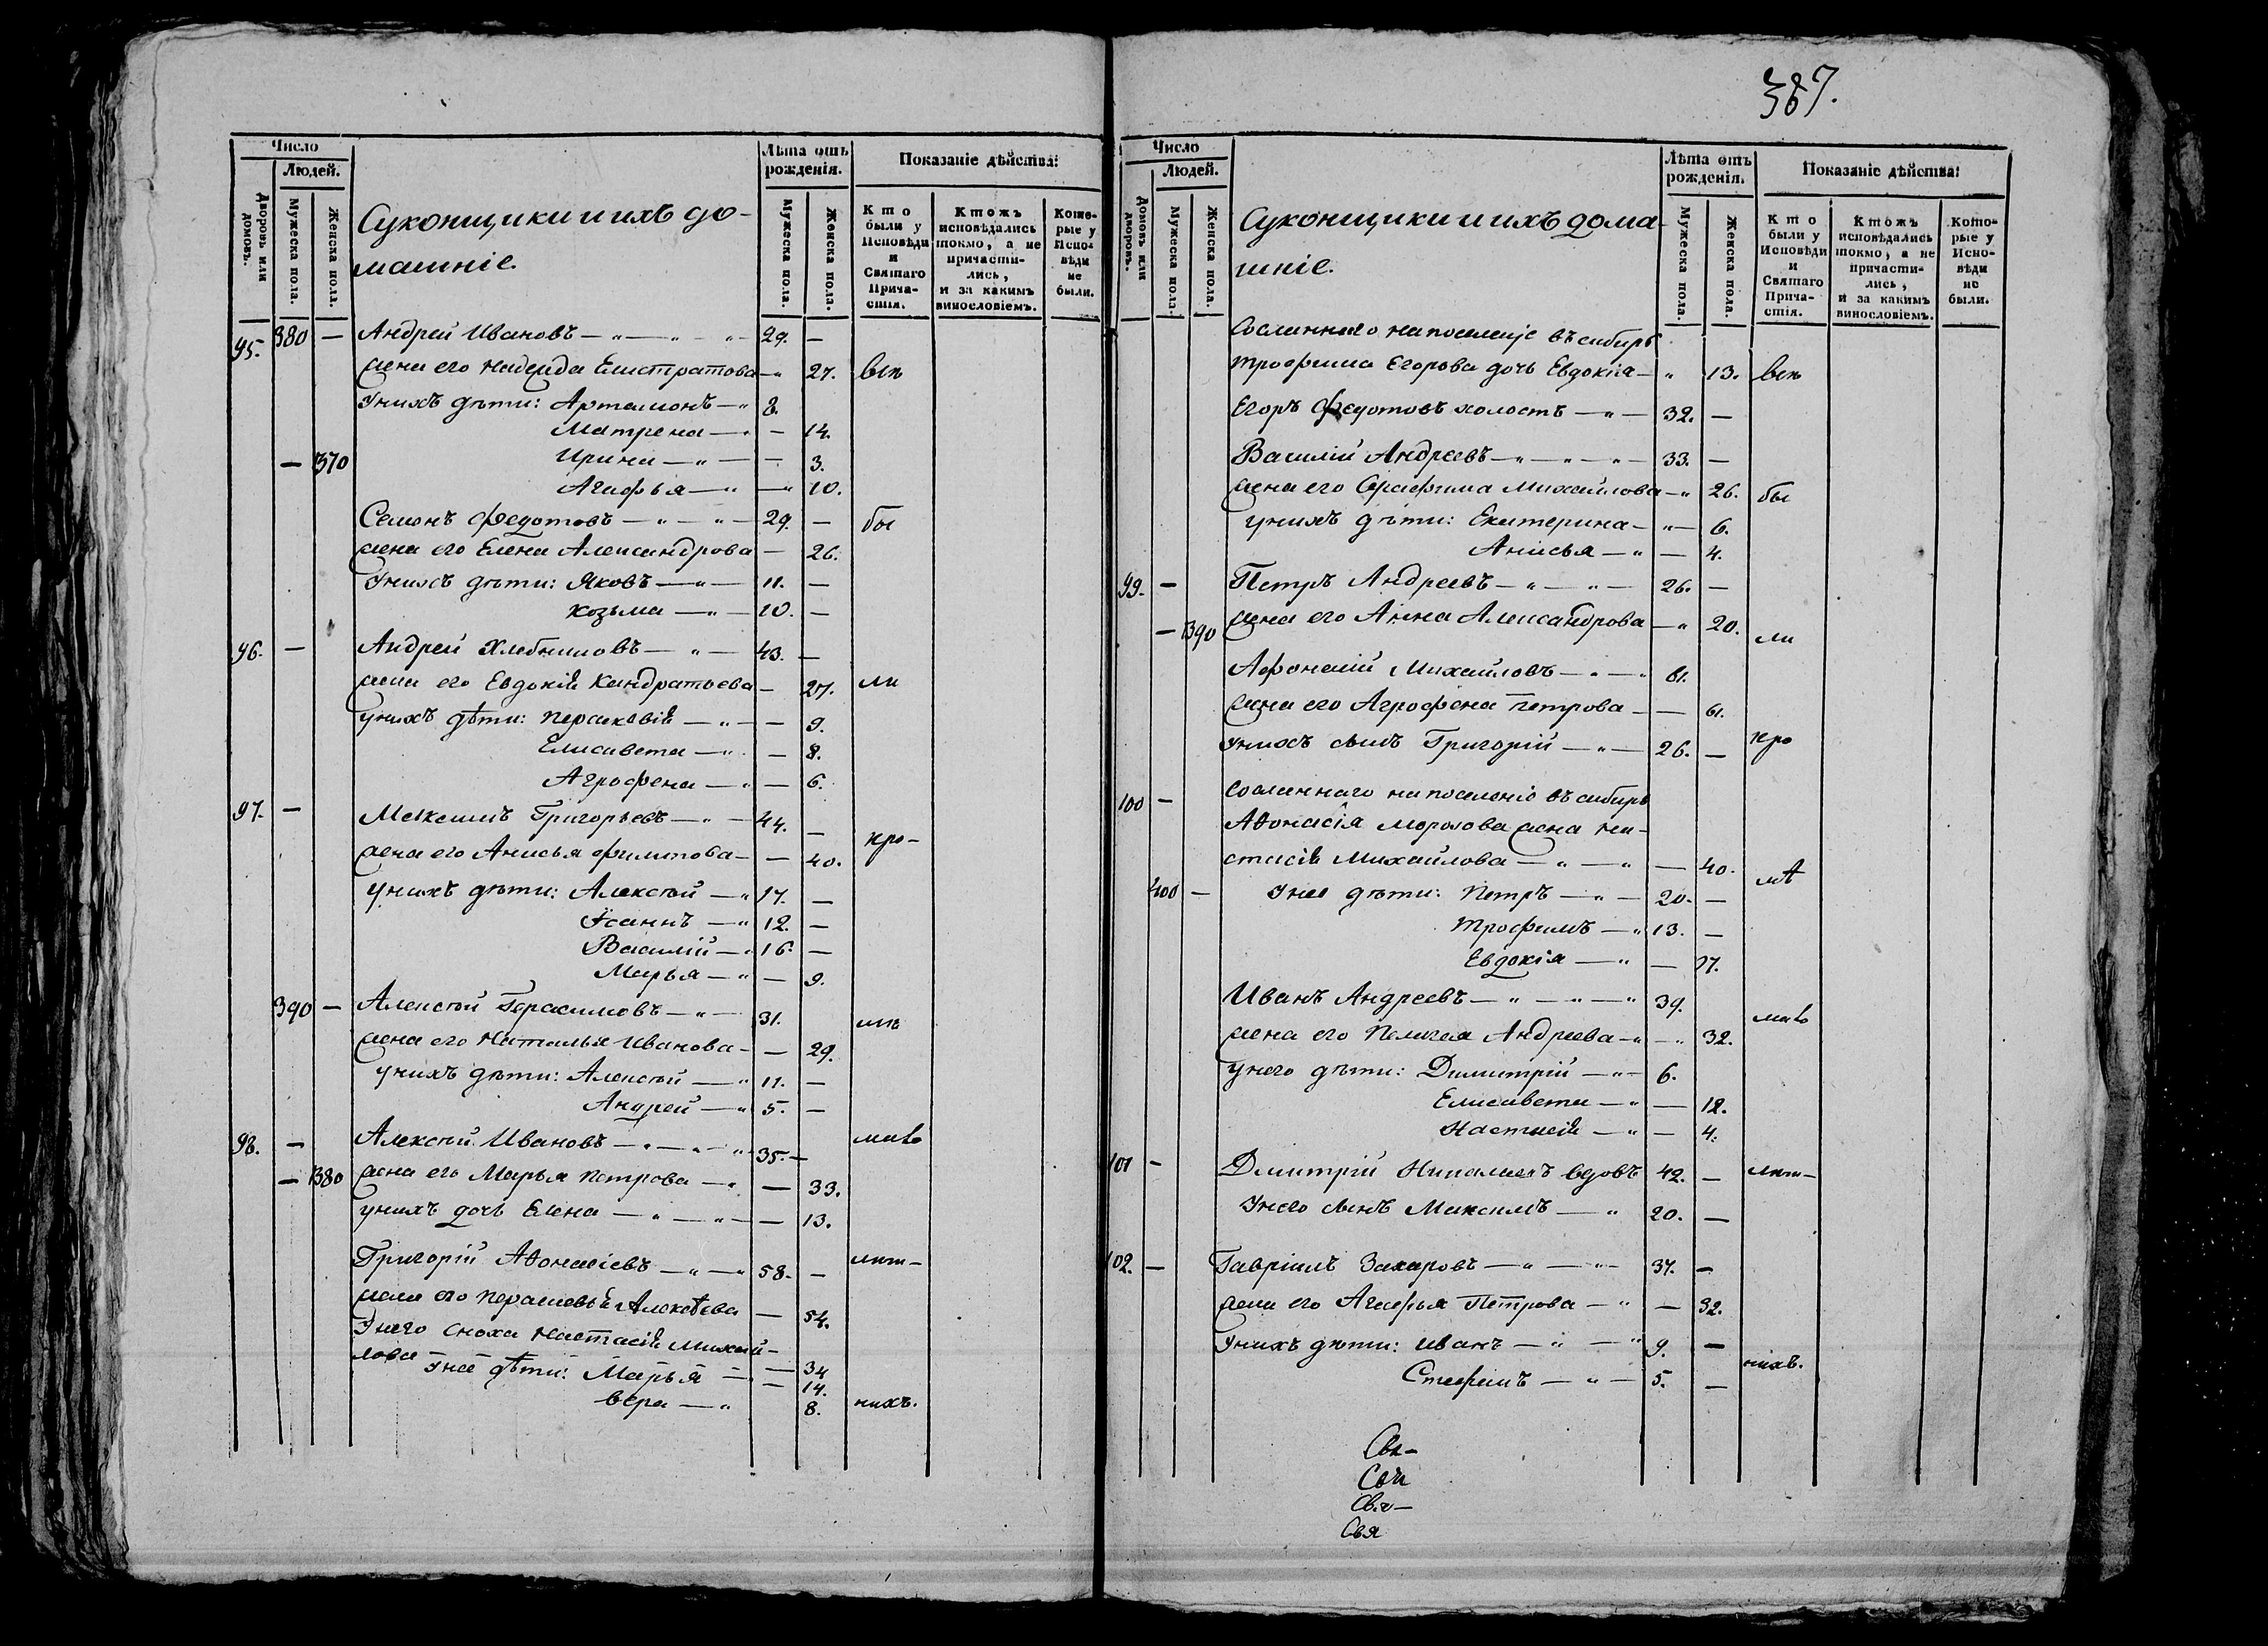 387.
Число
Людей.
Дворовъ или домовъ.
Мужеска пола.
Женска пола.
Суконщики и ихъ до-
машніе.
Лѣта отъ рожденія.
Мужеска пола.
Женска пола.
Показаніе дѣйства:
Кто были у Исповѣди и Святаго Прича-стія.
Ктожъ исповѣдались токмо, а не причасти-лись, и за какимъ винословіемъ.
Кото-рые у Испо-вѣди не были.
95. 380 — Андрей Ивановъ — 29. —
жена его Надежда Елистратова — 27. всѣ
у нихъ дѣти: Артамонъ — 8.
Матрена — 14.
— 370 Ирина — 3.
Агафья — 10.
Семенъ Федотовъ — 29. — бы
жена его Елена Александрова — 26.
у нихъ дѣти: Яковъ — 11. —
Козьма — 10. —
96. — Андрей Хлебниковъ — 43. —
жена его Евдокія Кандратьева — 27. ли
у нихъ дѣти: Парасковія — 9.
Елисавета — 8.
Агрофена — 6.
97. — Максимъ Григорьевъ — 44. —
жена его Анисья Филипова — 40. кро-
у нихъ дѣти: Алексѣй — 17. —
— 12. —
Василій — 16. —
Марья — 9.
390 — Алексѣй Герасимовъ — 31.
жена его Наталья Иванова — 29.
у нихъ дѣти: Алексѣй — 11. —
Андрей — 5. —
98. — Алексѣй Ивановъ — 35. — мало
— 380 жена его Марья Петрова — 33.
у нихъ дочь Елена — 13.
Григорій Афонасіевъ — 58. — лѣт-
жена его Парасковья Алексѣева — 54.
У него сноха Настасія Михай-
лова — 34
у нея дѣти: Марья — 14.
Вера — 8. нихъ.
Число
Людей.
Домовъ или дворовъ.
Мужеска пола.
Женска пола.
Суконщики и ихъ дома-
шніе.
Лѣта отъ рожденія.
Мужеска пола.
Женска пола.
Показаніе дѣйства:
Кто были у Исповѣди и Святаго Прича-стія.
Ктожъ исповѣдались токмо, а не причасти-лись, и за какимъ винословіемъ.
Кото-рые у Испо-вѣди не были.
Сосланнаго на поселеніе въ сибирь
Трофима Егорова дочь Евдокія — 13. всѣ
Егоръ Федотовъ холостъ — 32. —
Василій Андреевъ — 33. —
жена его Серафима Михайлова — 26. бы
у нихъ дѣти: Екатерина — 6.
Анисья — 4.
99. — Петръ Андреевъ — 26. —
— 390 жена его Анна Александрова — 20. ли
Афонасій Михайловъ — 61.
жена его Агрофена Петрова — 61.
у нихъ сынъ Григорій — 26. — кро
100 — Сосланнаго на поселеніе въ сибирь
Афонасія Морозова жена На-
стасія Михайлова — 40. мѣ
400 — у нея дѣти: Петръ — 20. —
Трофимъ — 13. —
Евдокія — 17.
Иванъ Андреевъ — 39. мало
жена его Пелагея Андреева — 32.
у него дѣти: Димитрій — 6.
Елисавета — 12.
Настасія — 4.
101 — Дмитрій вдовъ 42. — лѣт-
у него сынъ Максимъ — 20. —
102. — Гавріилъ Захаровъ — 37. —
жена его Агафья Петрова — 32.
у нихъ дѣти: Иванъ — 9. —
Стефанъ — 5. — нихъ.
Свя-
Свя
Свя-
Свя